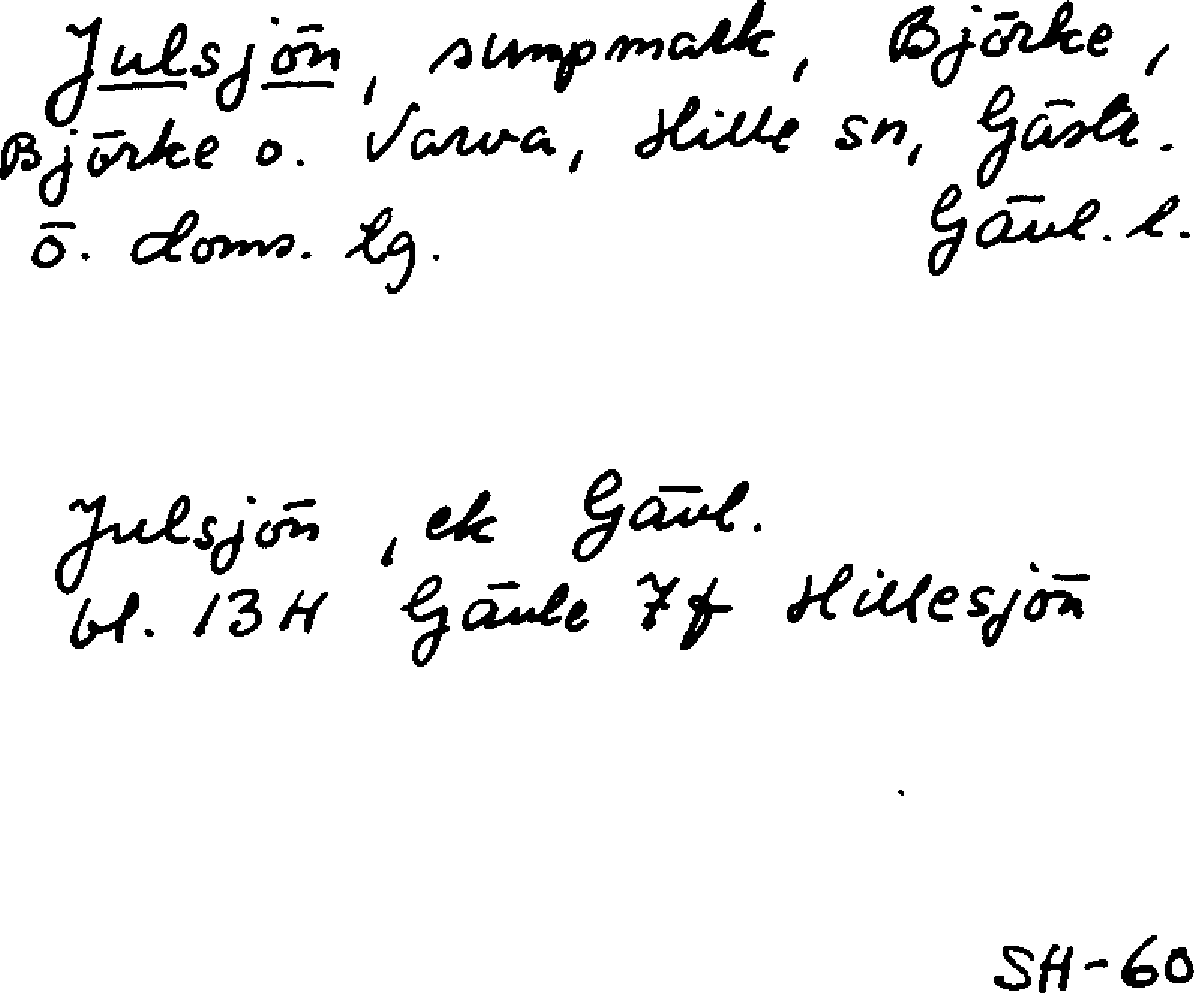 Julsjön, sumpmark, Björke,
Björke o. Varva, Hille sn, Gästr.
ö. doms. lg. Gävl. l.
Julsjön, ek Gävl.
bl. 13H Gävle 7f Hillesjön
SH-60